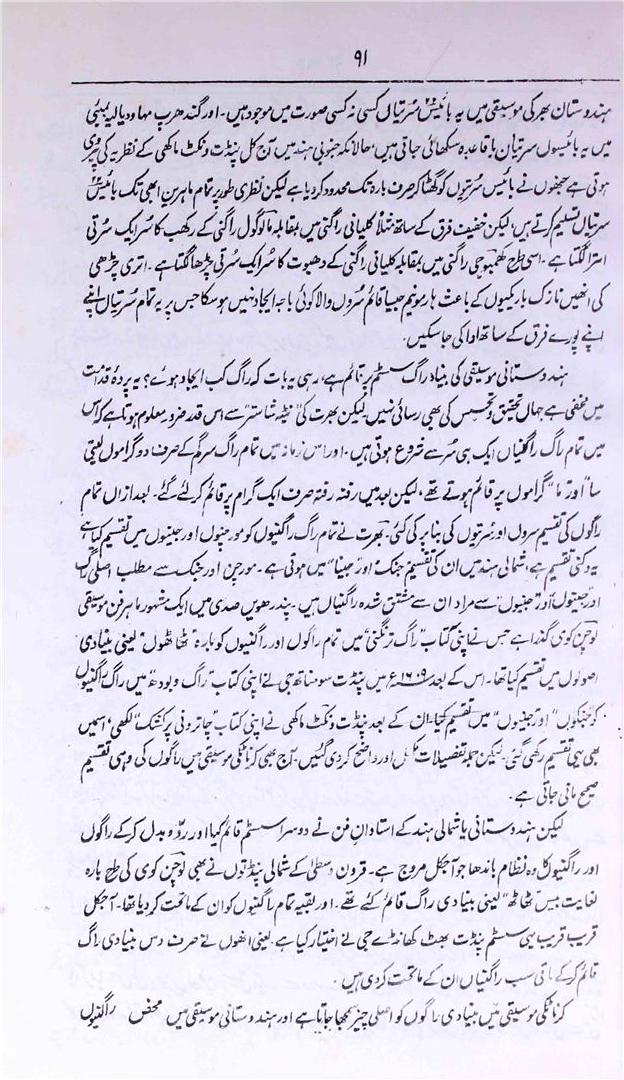 ۹۱
ہندوستان بھر کی موسیقی میں یہ بائیس سرتیاں کسی نہ کسی صورت میں موجود ہیں۔ اور گندھرب مہاودیالیہ بمبئی
میں یہ بائیسوں سرتیاں باقاعدہ سکھائی جاتی ہیں حالانکہ جنوبی ہند میں آج کل پنڈت ونکٹ ماکھی کے نظریہ کی پیروی
ہوتی ہے جنھوں نے بائیس سرتوں کو گھٹا کر صرف بارہ تک محدود کر دیا ہے لیکن نظری طور پر تمام ماہرین ابھی تک بائیس
سرتیاں تسلیم کرتے ہیں، لیکن خفیف فرق کے ساتھ مثلاً کلیانی راگنی میں بمقابلہ مالوگول راگنی کے رکھب کا سر ایک سرتی
اترا لگتا ہے۔ اسی طرح کھمبوجی راگنی میں بمقابلہ کلیانی راگنی کے دھیوت کا سر ایک سرتی چڑھا لگتا ہے۔ اتری چڑھی
کی انھیں نازک باریکیوں کے باعث ہارمونیم جیسا قائم سروں والا کوئی باجہ ایجاد نہیں ہو سکا جس پر یہ تمام سرتیاں اپنے
اپنے پورے فرق کے ساتھ ادا کی جا سکیں۔
ہندوستانی موسیقی کی بنیاد راگ سسٹم پر قائم ہے، رہی یہ بات کہ راگ کب ایجاد ہوئے؟ یہ پردۂ قدامت
میں مخفی ہے جہاں تحقیق و تجسس کی بھی رسائی نہیں لیکن بھرت کی "نٹیہ شاستر" سے اس قدر ضرور معلوم ہوتا ہے کہ اس
میں تمام راگ راگنیاں ایک ہی سر سے شروع ہوتی ہیں۔ اور اس زمانہ میں تمام راگ سرگم کے صرف دو گراموں یعنی
"سا" اور "ما" گراموں پر قائم ہوتے تھے، لیکن بعد میں رفتہ رفتہ صرف ایک گرام پر قائم کر لئے گئے۔ بعد ازاں تمام
راگوں کی تقسیم سروں اور سرتوں کی بنا پر کی گئی۔ بھرت نے تمام راگ راگنیوں کو مورچنوں اور جینوں میں تقسیم کیا ہے
یہ دکنی تقسیم ہے، شمالی ہند میں ان کی تقسیم "جنک" اور "جینا" میں ہوتی ہے۔ مورچن اور جنک سے مطلب اصلی راگ
اور "جیتوں" اور "جنیوں" سے مراد ان سے مشتق شدہ راگنیاں ہیں۔ پندرھویں صدی میں ایک مشہور ماہر فن موسیقی
لوچن کوی گذرا ہے جس نے اپنی کتاب "راگ ترنگنی" میں تمام راگوں اور راگنیوں کو بارہ "ٹھاٹھوں" یعنی بنیادی
اصولوں میں تقسیم کیا تھا۔ اس کے بعد ۱۶۰۹ء میں پنڈت سومناتھ جی نے اپنی کتاب "راگ وبودھ" میں راگ راگنیوں
کو "جنکوں" اور "جینیوں" میں تقسیم کیا۔ ان کے بعد پنڈت ونکٹ ماکھی نے اپنی کتاب "چاتر دنی پرکشک" لکھی، اسمیں
بھی یہی تقسیم رکھی گئی۔ لیکن جملہ تفصیلات مکمل اور واضح کر دی گئیں۔ آج بھی کرناٹکی موسیقی میں راگوں کی وہی تقسیم
صحیح مانی جاتی ہے۔
لیکن ہندوستانی یا شمالی ہند کے استادان فن نے دوسرا سسٹم قائم کیا اور رد و بدل کر کے راگوں
اور راگنیوں کا وہ نظام باندھا جو آجکل مروج ہے۔ قرون وسطیٰ کے شمالی پنڈتوں نے بھی لوچن کوی کی طرح بارہ
لغایت بیس "ٹھاٹھ" یعنی بنیادی راگ قائم کئے تھے۔ اور بقیہ تمام راگنیوں کو ان کے ماتحت کر دیا تھا۔ آجکل
قریب قریب یہی سسٹم پنڈت بھٹ کھانڈے جی نے اختیار کیا ہے۔ یعنی انھوں نے صرف دس بنیادی راگ
قائم کر کے باقی سب راگنیاں ان کے ماتحت کر دی ہیں۔
کرناٹکی موسیقی میں بنیادی راگوں کو اصلی چیز سمجھا جاتا ہے اور ہندوستانی موسیقی میں محض راگنیوں